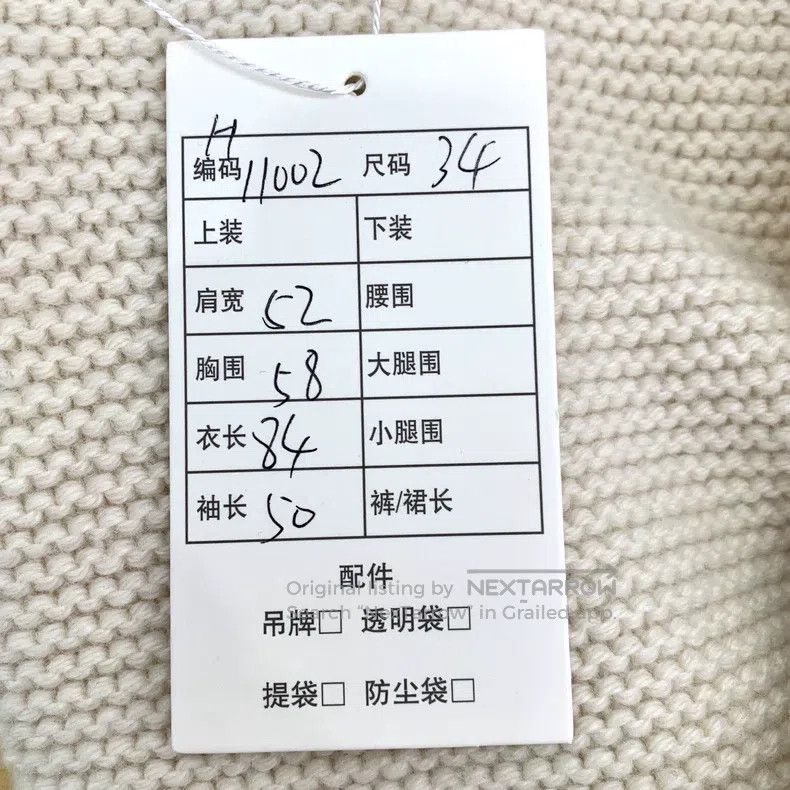 H
编码 11002 尺码 34
上装 下装
肩宽 52 腰围
胸围 58 大腿围
衣长 84 小腿围
袖长 50 裤/裙长
配件
Original listing by NEXTARROW
Search "NextArrow" in Grailed app.
吊牌□ 透明袋□
提袋□ 防尘袋□